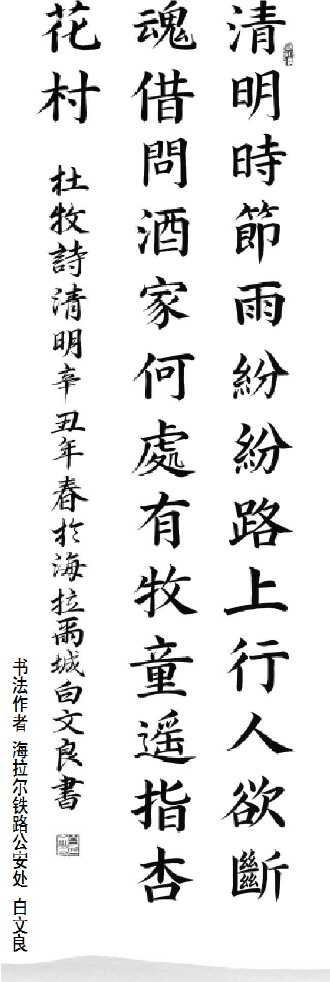 清明時節雨紛紛路上行人欲斷
魂借問酒家何處有牧童遥指杏
花村
杜牧詩清明辛丑年春於海拉爾城白文良書
书法作者 海拉尔铁路公安处 白文良